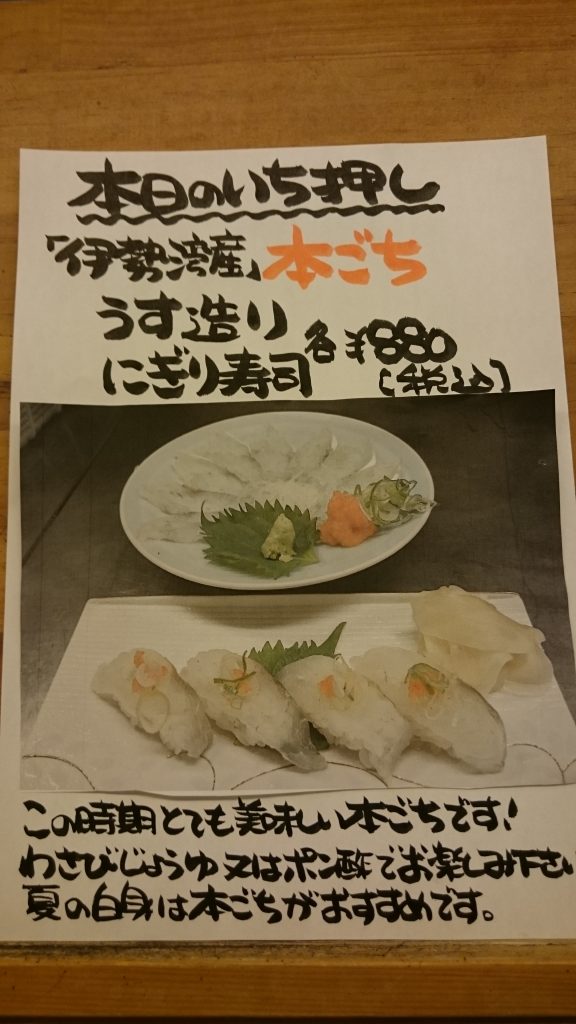 本日のいち押し
「伊勢湾産」本ごち
うす造り
にぎり寿司 各¥880
[税込]
この時期とても美味しい本ごちです!
わさびじょうゆ又はポン酢でお楽しみ下さい
夏の白身は本ごちがおすすめです。